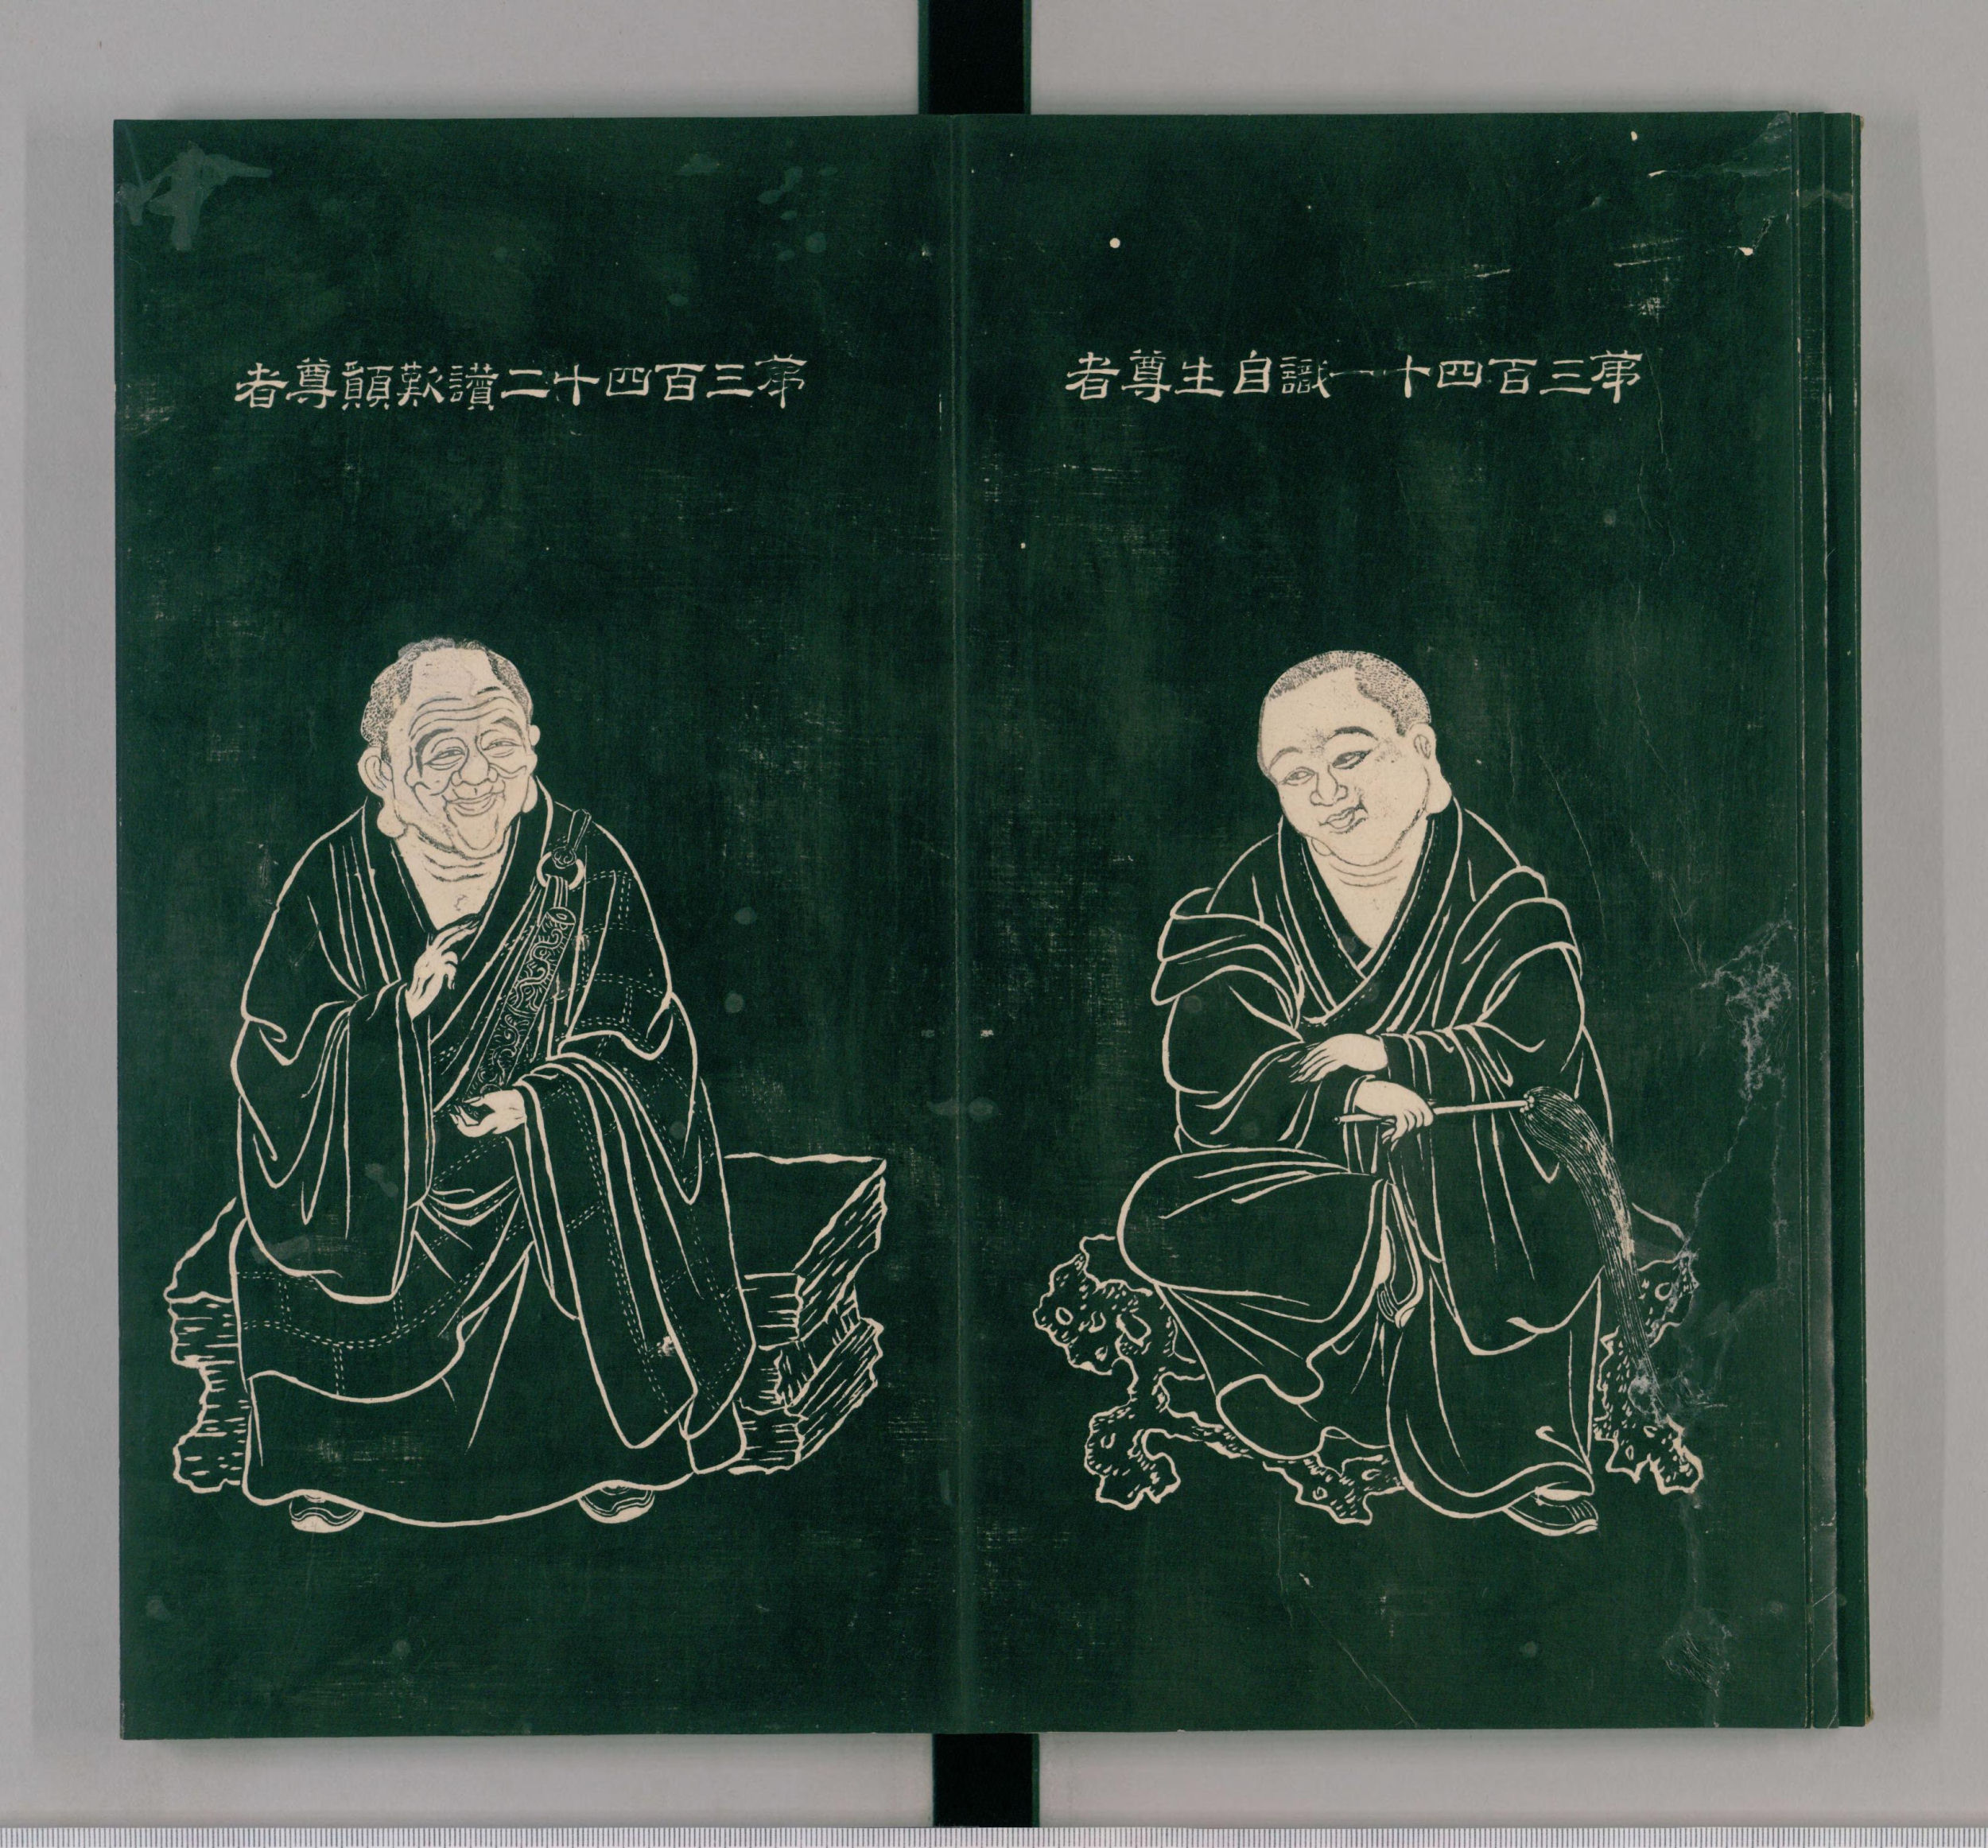 苐三百四十一識自生尊者
苐三百四十二讃歎顖尊者